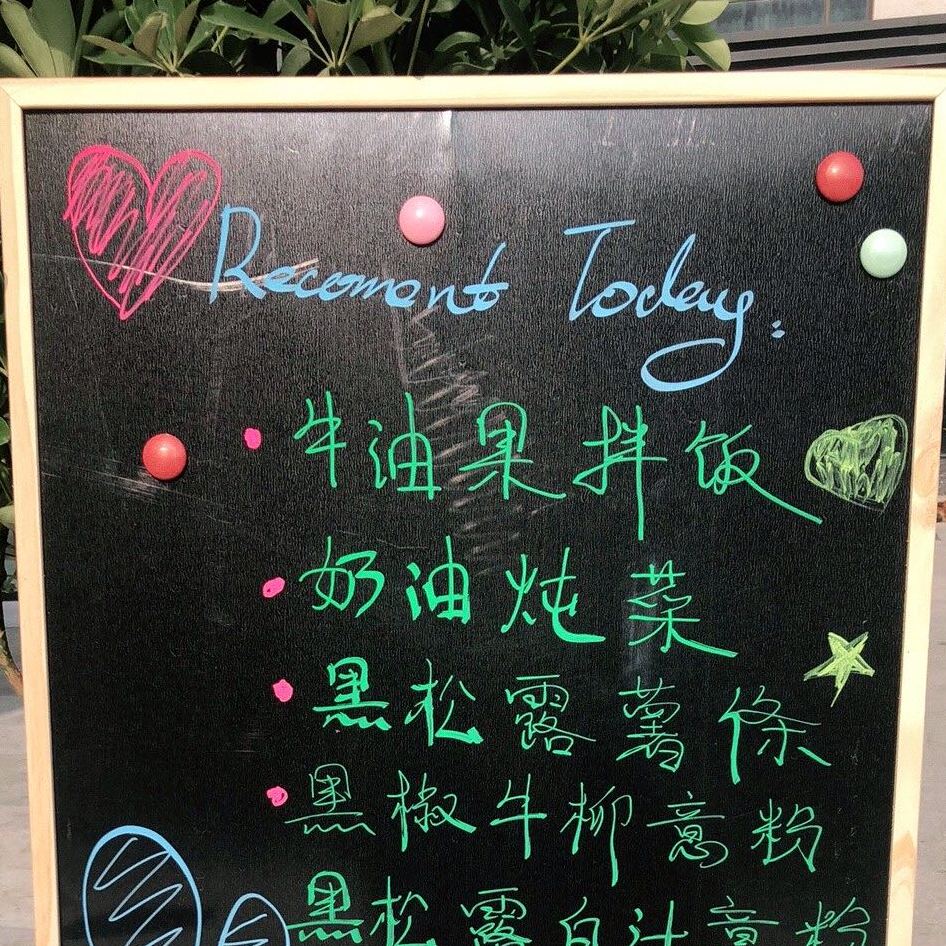 Recoment Today:
牛油果拌饭
奶油炖菜
黑松露薯条
黑椒牛柳意粉
黑松露白汁意粉